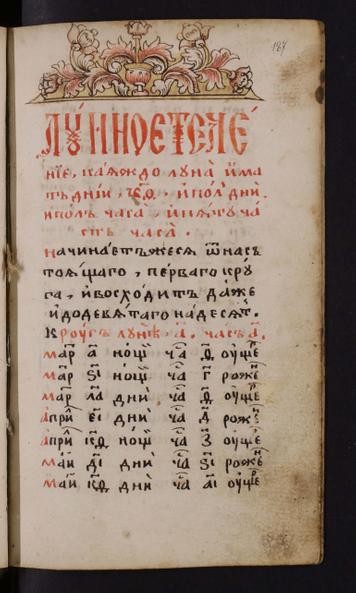 187
Лꙋнноетече
ніе, каꙗждо лꙋна има
тъ дніи, к҃ѳ, ипол дни,
иполъ часа, ипѧтꙋю ча
сть часа.
начинаетъжесѧ ѿнасъ
тоѧщаго, перваго крꙋ
га, ивосходитъ даже
идодевѧтаго на десѧт.
Крꙋгъ лꙋнѣ, а҃, часъ а҃.
мар а҃ нощ ча ѳ҃ оуще
мар ѕ҃і нощ ча г҃ рожє
мар л҃а дни ча ѳ҃ оуще
апри е҃і дни ча д҃ рож
апри к҃ѳ нощ ча з҃ оуще
маи д҃і дни ча ѕ҃і роже
маи к҃ѳ дни ча а҃і оуще